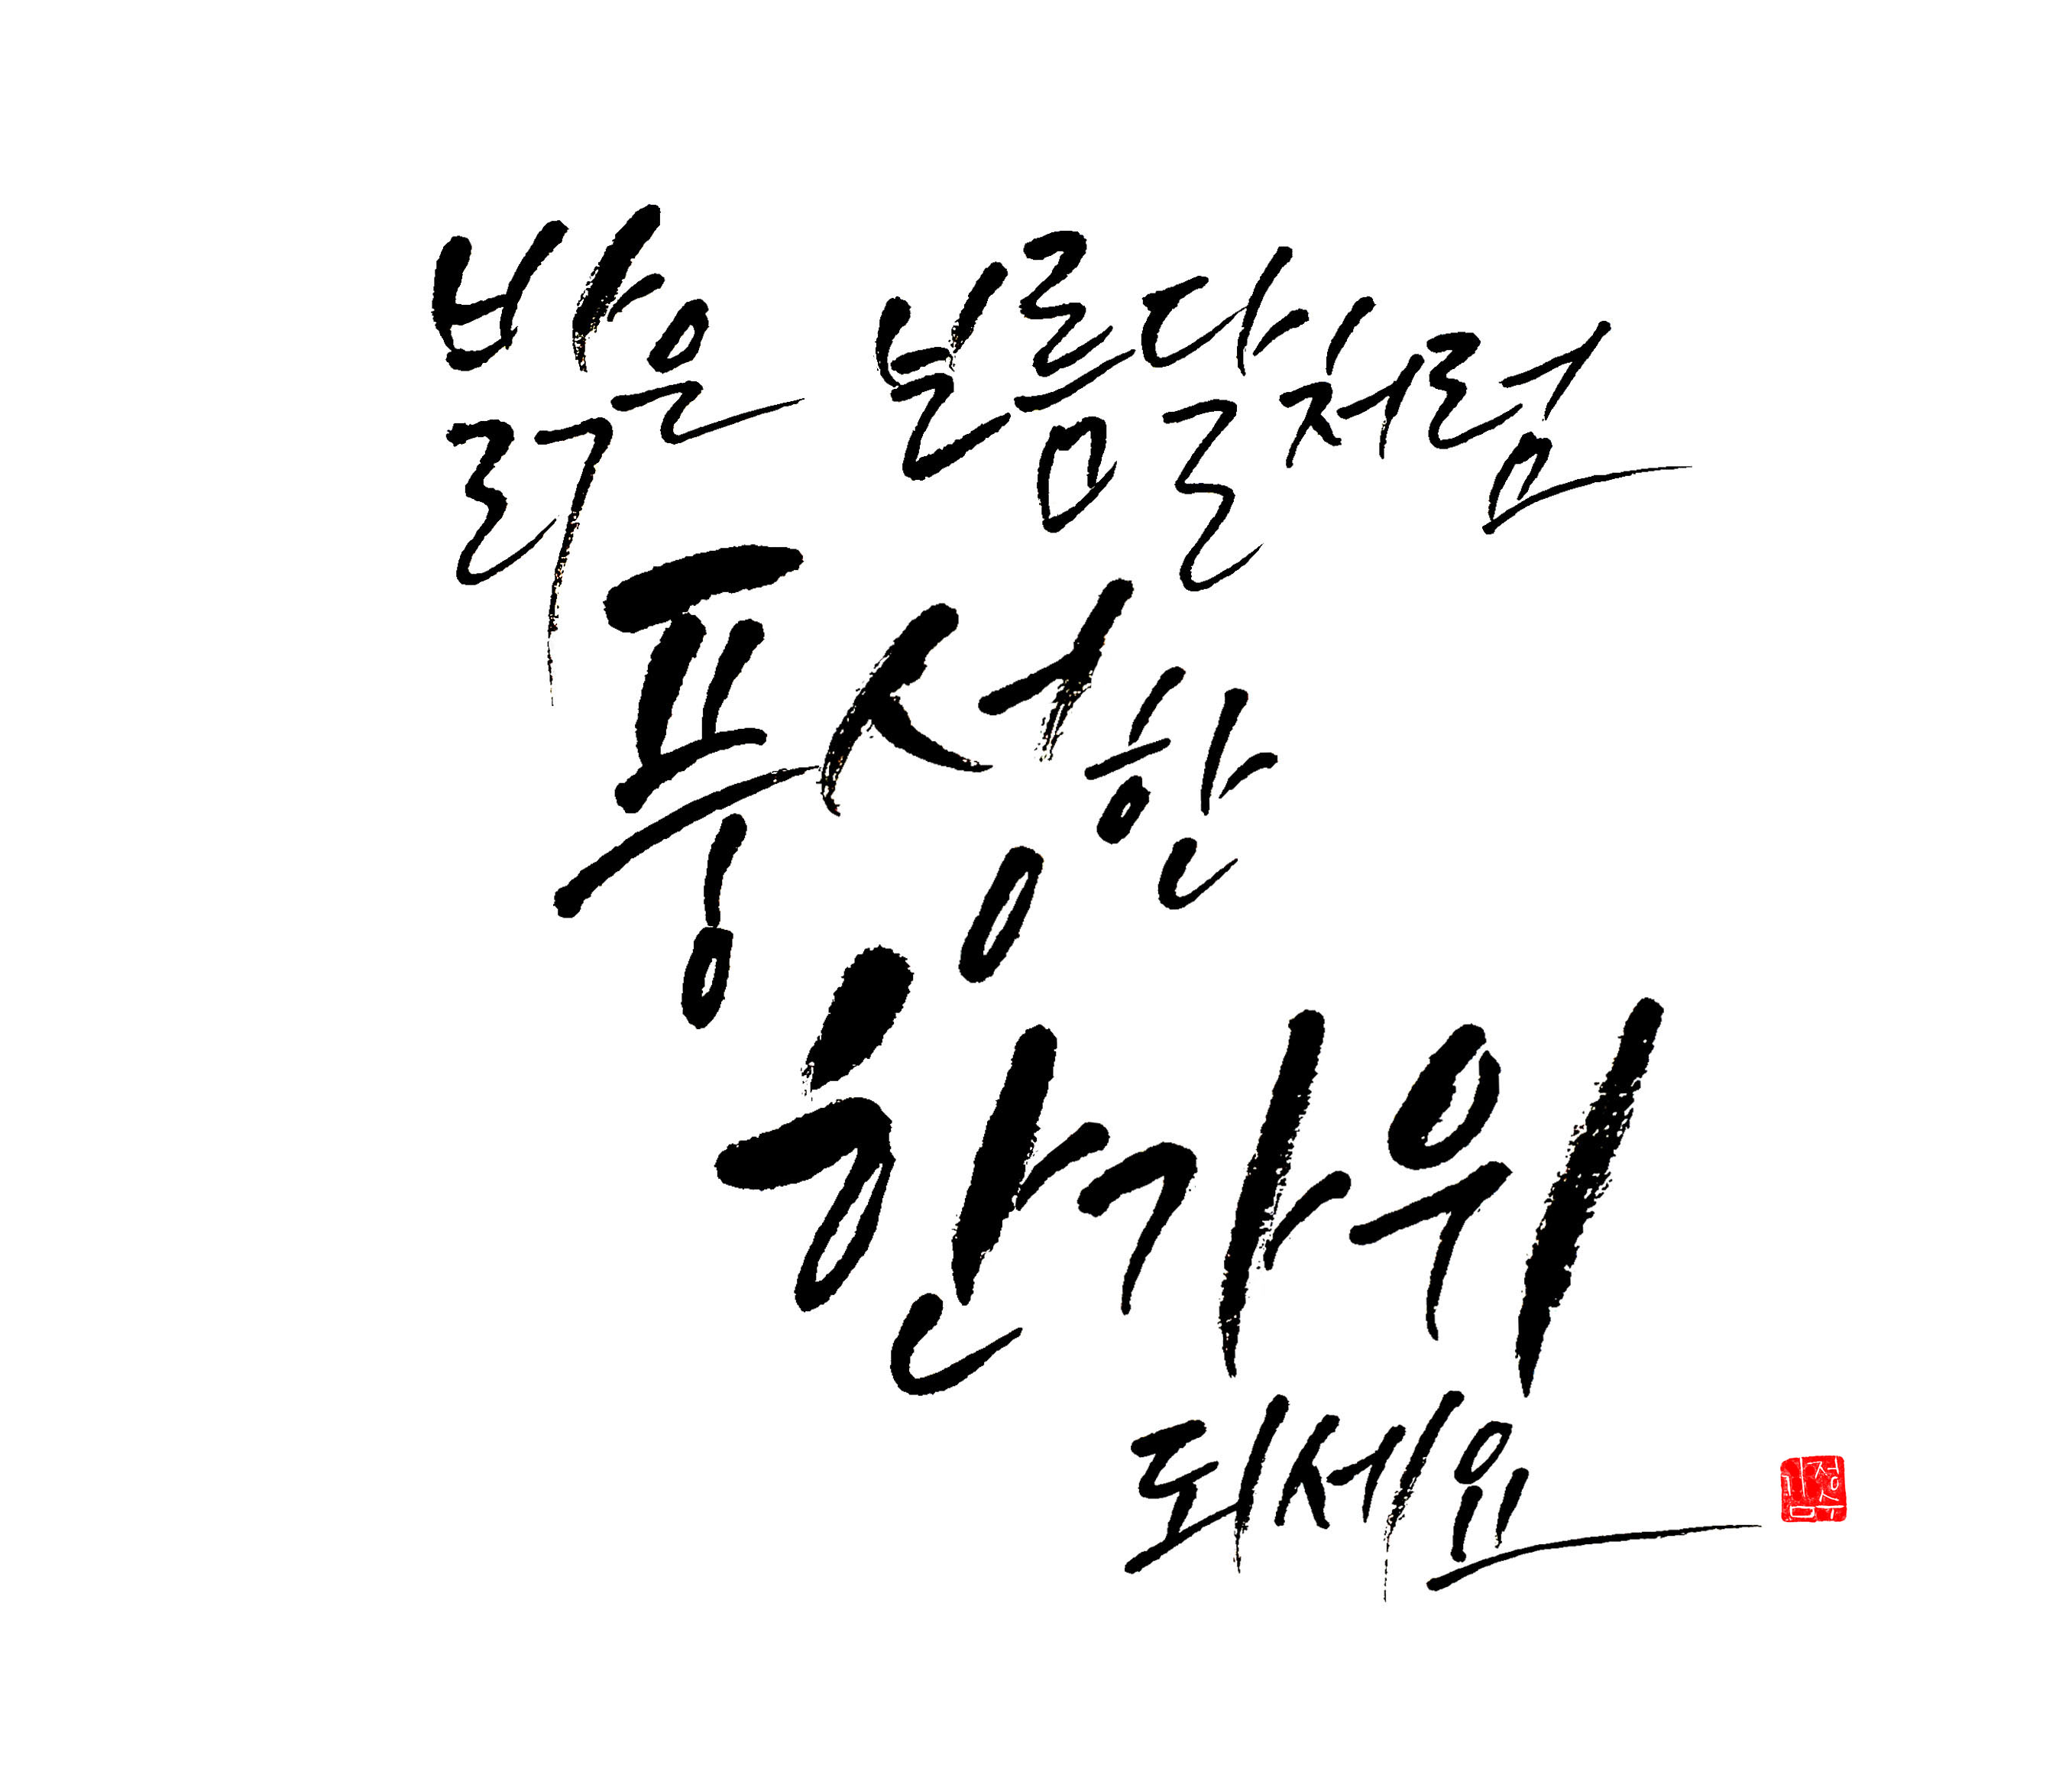 밝은 보름달처럼
풍성한
한가위
되세요